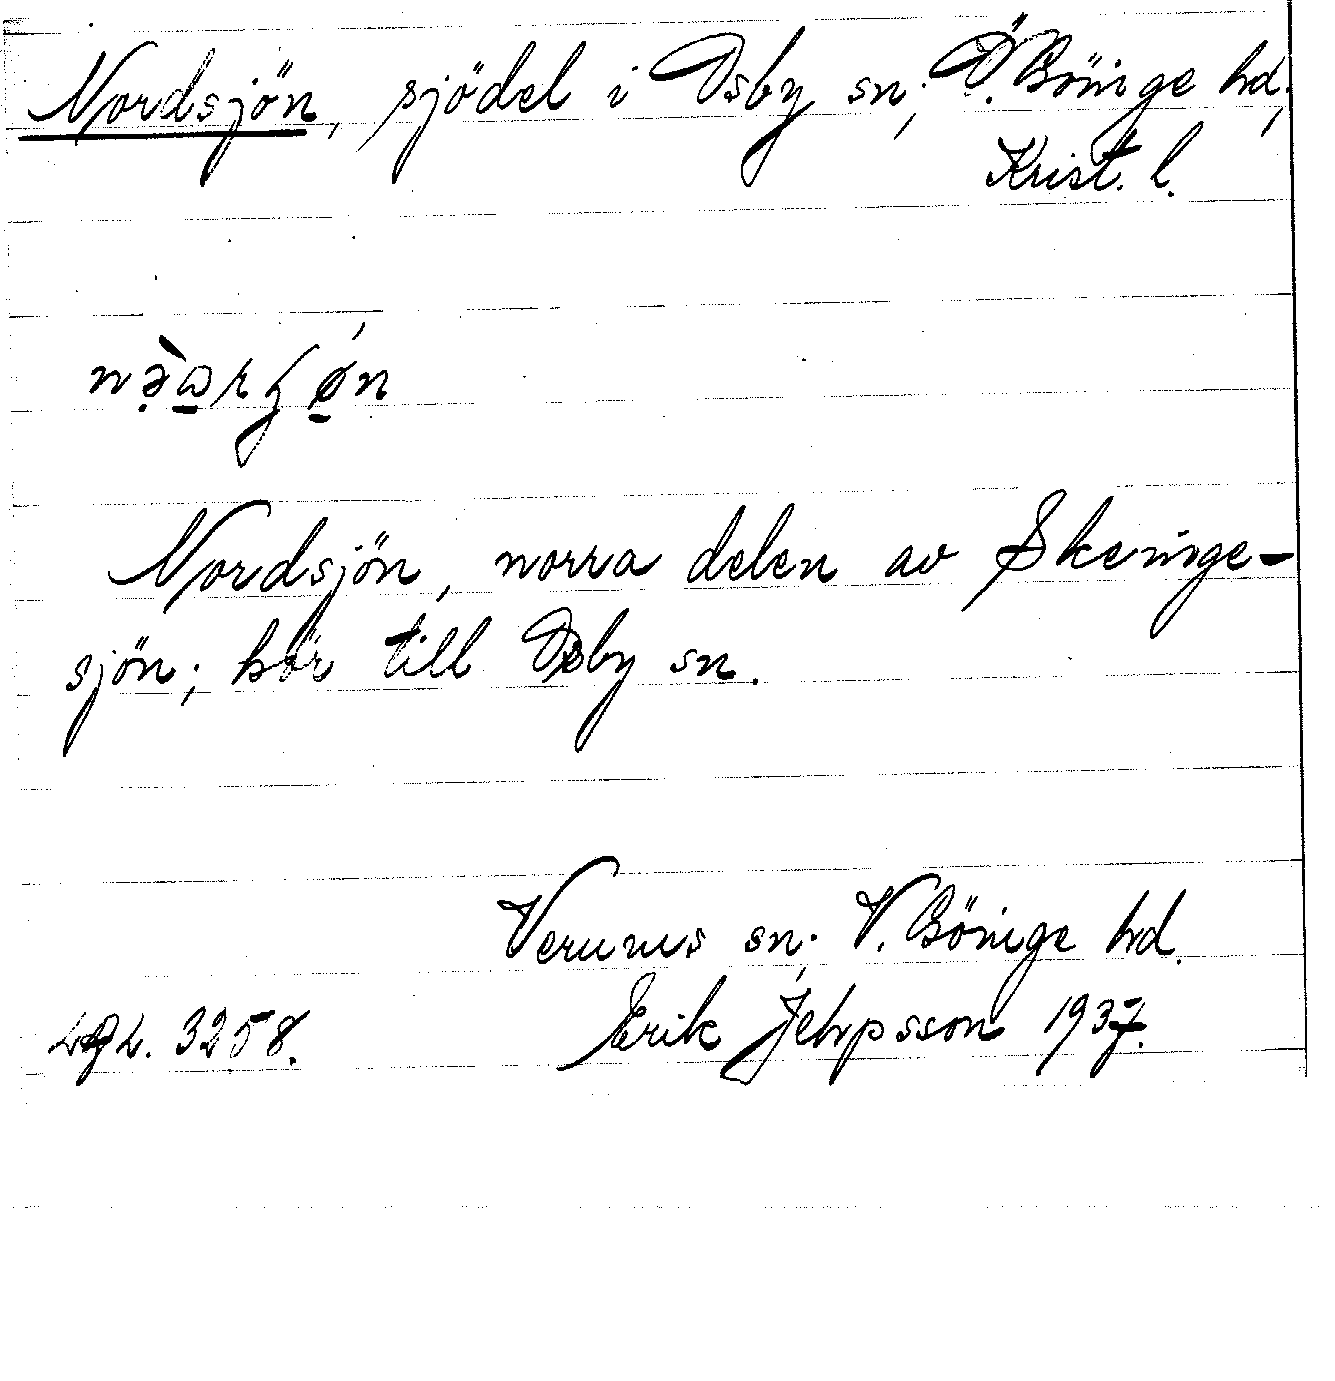 Nordsjön, sjödel i Osby sn; Ö. Göinge hd;
Krist. l.
Nordsjön, norra delen av Skeinge-
sjön; hör till Osby sn.
Verums sn; V. Göinge hd.
LAL. 3258. Erik Jeppsson 1937.